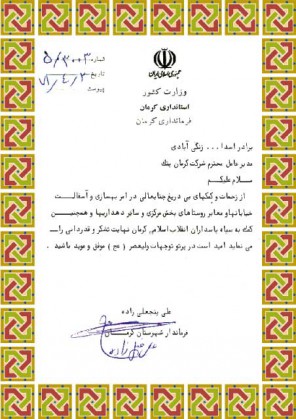 شماره ۵/۳۰۰۳
تاریخ
پیوست
جمهوری اسلامی ایران
وزارت کشور
استانداری کرمان
فرمانداری کرمان
برادر اسدا... زنگی آبادی
مدیرعامل محترم شرکت کرمان پیک
سلام علیکم
از زحمات و کمکهای بی دریغ جنابعالی در امر بهسازی و آسفالت
خیابانها و معابر روستاهای بخش مرکزی و سایر دهداریها و همچنین
کمک به سپاه پاسداران انقلاب اسلامی کرمان نهایت تشکر و قدردانی را
می نماید امید است در پرتو توجهات ولیعصر (عج) موفق و موید باشید.
علی پنجعلی زاده
فرماندار شهرستان کرمان